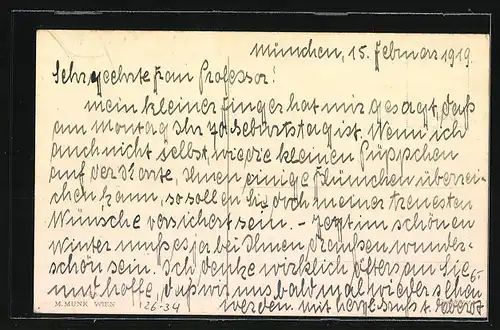 München, 15. Februar 1919.
Sehr geehrte Frau Professor!
Mein kleiner Finger hat mir gesagt, daß
am Montag Ihr 70. Geburtstag ist. Wenn ich
auch nicht selbst, wie die kleinen Püppchen
auf der Karte, Ihnen einige Blümchen überrei-
chen kann, so sollen Sie doch meiner treuesten
Wünsche versichert sein. – Jetzt im schönen
Winter muß es ja bei Ihnen draußen wunder-
schön sein. Ich denke wirklich öfters an Sie
und hoffe, daß wir uns bald mal wieder sehen
werden. Mit herzl. Gruß
M. MUNK WIEN
26-34